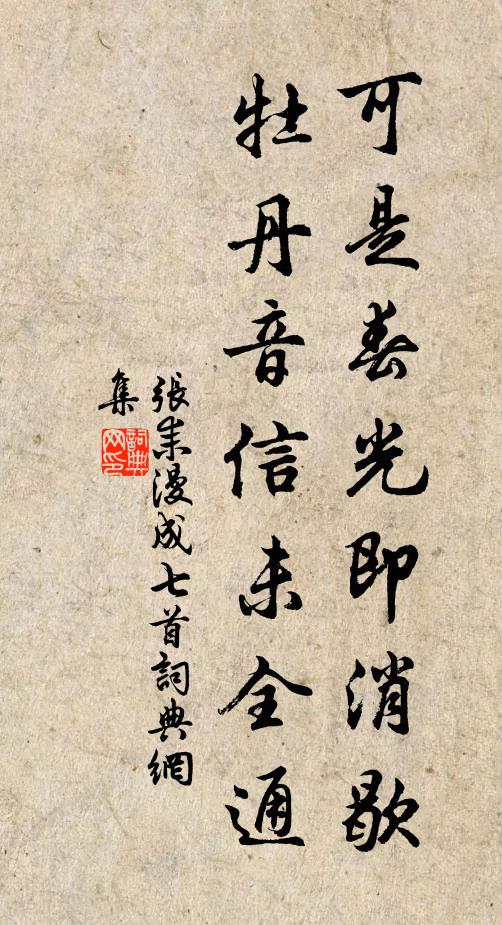 可是春光即消歇
牡丹音信未全通
張耒漫成七首詞典網
集
詞典網印